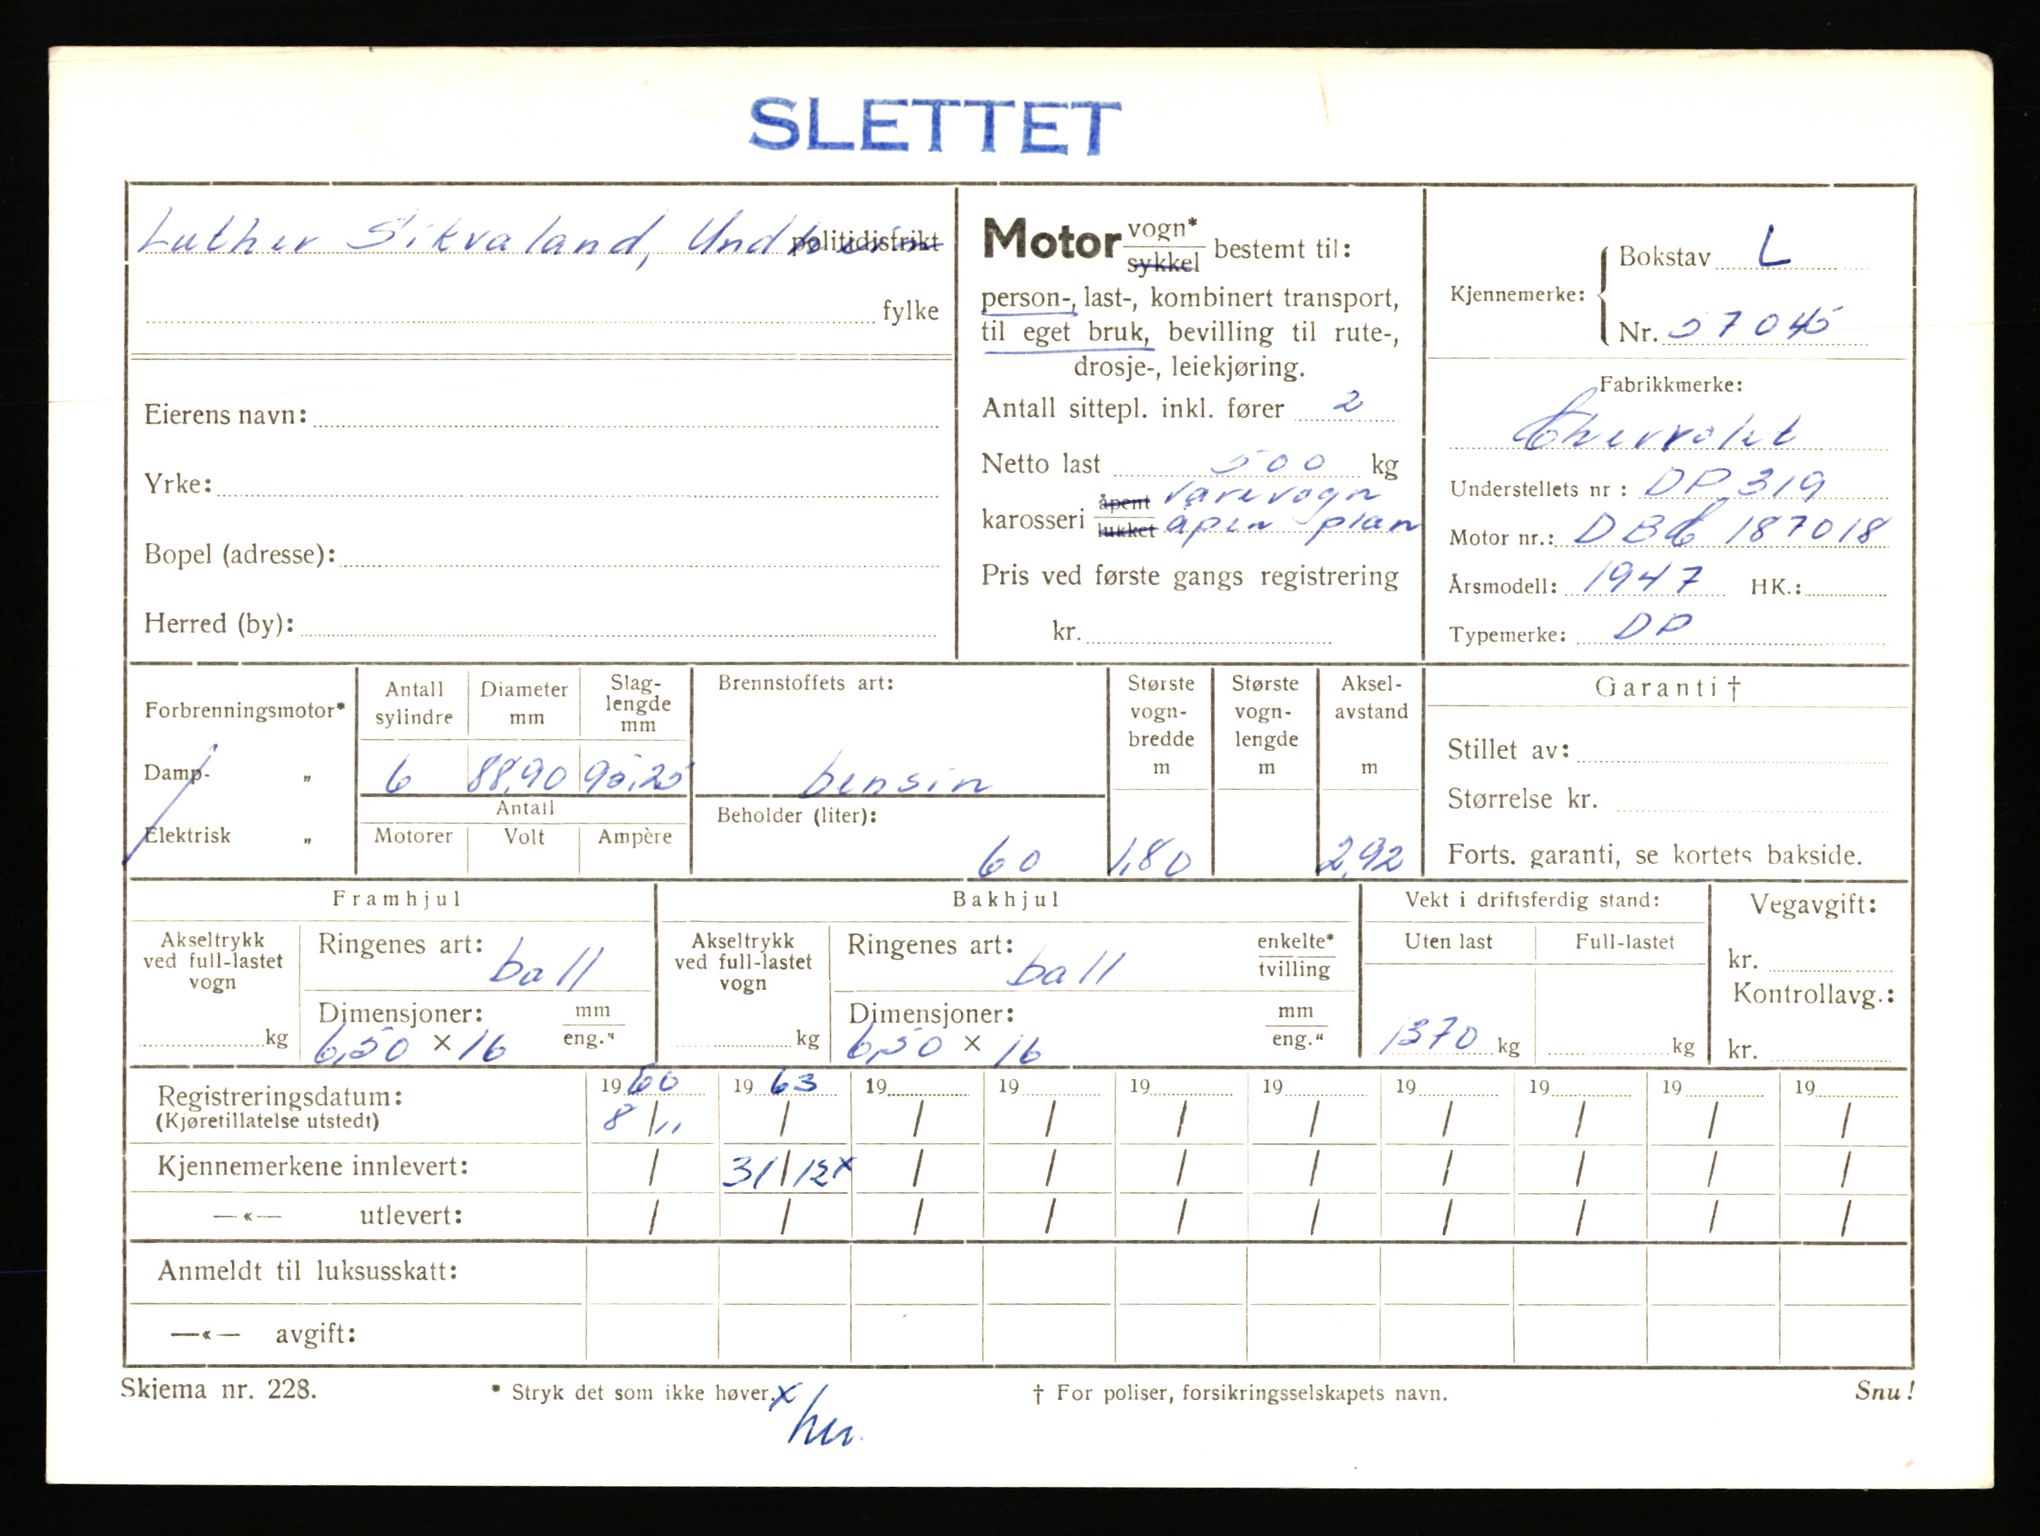 SLETTET
Luther Sikvaland, Undheim politidistrikt
fylke
Eierens navn:
Yrke:
Bopel (adresse):
Herred (by):
Motor vogn* / sykkel bestemt til:
person-, last-, kombinert transport,
til eget bruk, bevilling til rute-,
drosje-, leiekjøring.
Antall sittepl. inkl. fører 2
Netto last 500 kg
karosseri åpent / lukket varevogn åpen plan
Pris ved første gangs registrering
kr.
Kjennemerke:
Bokstav L
Nr. 57045
Fabrikkmerke:
Chevrolet
Understellets nr : DP 319
Motor nr.: DBC 187018
Årsmodell: 1947 HK.:
Typemerke: DP
Forbrenningsmotor*
Damp- „
Elektrisk „
Antall sylindre
Diameter mm
Slag-lengde mm
6 88,90 95,25
Antall
Motorer Volt Ampère
Brennstoffets art:
bensin
Beholder (liter):
60
Største vogn-bredde m
1,80
Største vogn-lengde m
Aksel-avstand m
2,92
Garanti †
Stillet av:
Størrelse kr.
Forts. garanti, se kortets bakside.
Framhjul
Akseltrykk ved full-lastet vogn
kg
Ringenes art: ball
Dimensjoner: mm / eng."
6,50 × 16
Bakhjul
Akseltrykk ved full-lastet vogn
kg
Ringenes art: ball enkelte* / tvilling
Dimensjoner: mm / eng."
6,50 × 16
Vekt i driftsferdig stand:
Uten last Full-lastet
1370 kg kg
Vegavgift:
kr.
Kontrollavg.:
kr.
Registreringsdatum: 1960 1963 19 19 19 19 19 19 19 19
(Kjøretillatelse utstedt) 8/11 / / / / / / / / /
Kjennemerkene innlevert: / 31/12 x / / / / / / / /
—«— utlevert: / / / / / / / / / /
Anmeldt til luksusskatt:
—«— avgift:
Skjema nr. 228. * Stryk det som ikke høver. † For poliser, forsikringsselskapets navn. Snu!
x